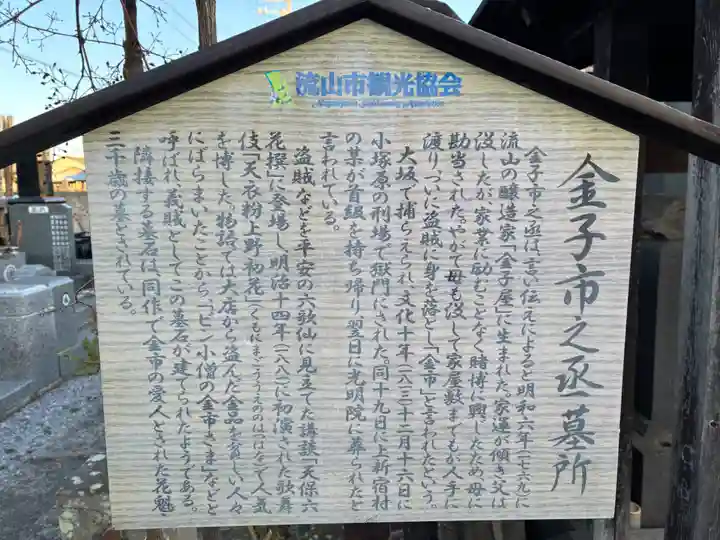 流山市観光協会
Nagareyama Sightseeing Association
金子市之丞墓所
金子市之丞は、言い伝えによると明和六年(一七六九)に
流山の醸造家「金子屋」に生まれた。家運が傾き父は
没したが、家業に励むことなく賭博に興じたため母に
勘当された。やがて母も没して家屋敷までもが人手に
渡り、ついに盗賊に身を落とし「金市」と言われたという。
大坂で捕らえられ、文化十年(一八一三)十二月十六日に
小塚原の刑場で獄門にされた。同十九日に上新宿村
の某が首級を持ち帰り、翌日に光明院に葬られたと
言われている。
盗賊などを平安の六歌仙に見立てた講談「天保六
花撰」に登場し、明治十四年(一八八一)に初演された歌舞
伎「天衣粉上野初花」(くもにまごううえののはつはな)で人気
を博した。物語では大店から盗んだ金品を貧しい人々
にばらまいたことから、「ピン小僧の金市さま」などと
呼ばれ、義賊としてこの墓石が建てられたようである。
隣接する墓石は、同作で金市の愛人とされた花魁
三千歳の墓とされている。